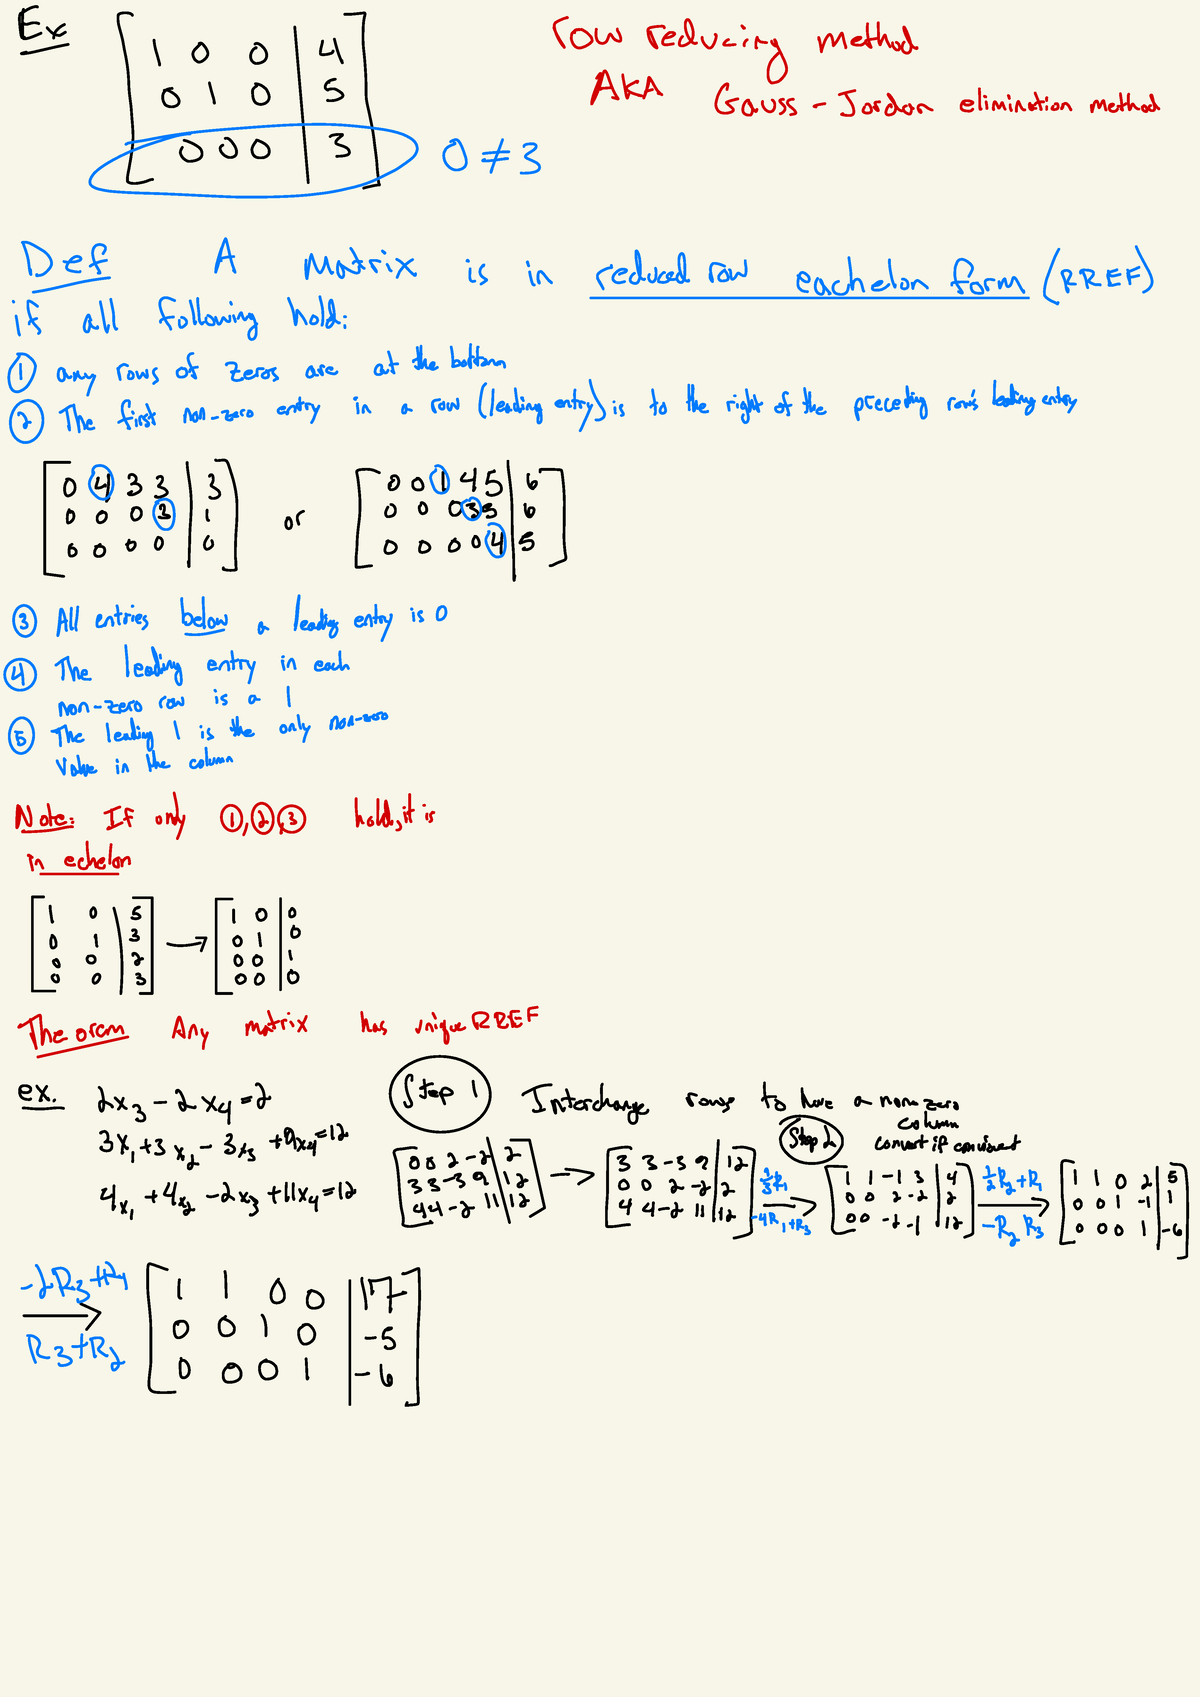 Ex
1 0 0 | 4
0 1 0 | 5
0 0 0 | 3
0 ≠ 3
row reducing method
AKA Gauss - Jordan elimination method
Def A matrix is in reduced row eachelon form (RREF)
if all following hold:
① any rows of zeros are at the bottom
② The first non-zero entry in a row (leading entry) is to the right of the preceding row's leading entry
0 4 3 3 | 3
0 0 0 3 | 1
0 0 0 0 | 0
or
0 0 1 4 5 | 6
0 0 0 3 5 | 6
0 0 0 0 4 | 5
③ All entries below a leading entry is 0
④ The leading entry in each
non-zero row is a 1
⑤ The leading 1 is the only non-zero
value in the column
Note: If only ①,②,③ hold, it is
in echelon
1 0 | 5
0 1 | 3
0 0 | 2
0 0 | 3
→
1 0 | 0
0 1 | 0
0 0 | 1
0 0 | 0
Theorem Any matrix has unique RREF
ex.
2x₃ - 2x₄ = 2
3x₁ + 3x₂ - 3x₃ + 9x₄ = 12
4x₁ + 4x₂ - 2x₃ + 11x₄ = 12
Step 1 Interchange rows to have a non zero
column
Step 2 convert if convinent
0 0 2 -2 | 2
3 3 -3 9 | 12
4 4 -2 11 | 12
→
3 3 -3 9 | 12
0 0 2 -2 | 2
4 4 -2 11 | 12
⅓R₁
→
-4R₁+R₃
1 1 -1 3 | 4
0 0 2 -2 | 2
0 0 -2 -1 | 12
½R₂+R₁
→
-R₂ R₃
1 1 0 2 | 5
0 0 1 -1 | 1
0 0 0 1 | -6
-2R₃+R₁
→
R₃+R₂
1 1 0 0 | 17
0 0 1 0 | -5
0 0 0 1 | -6